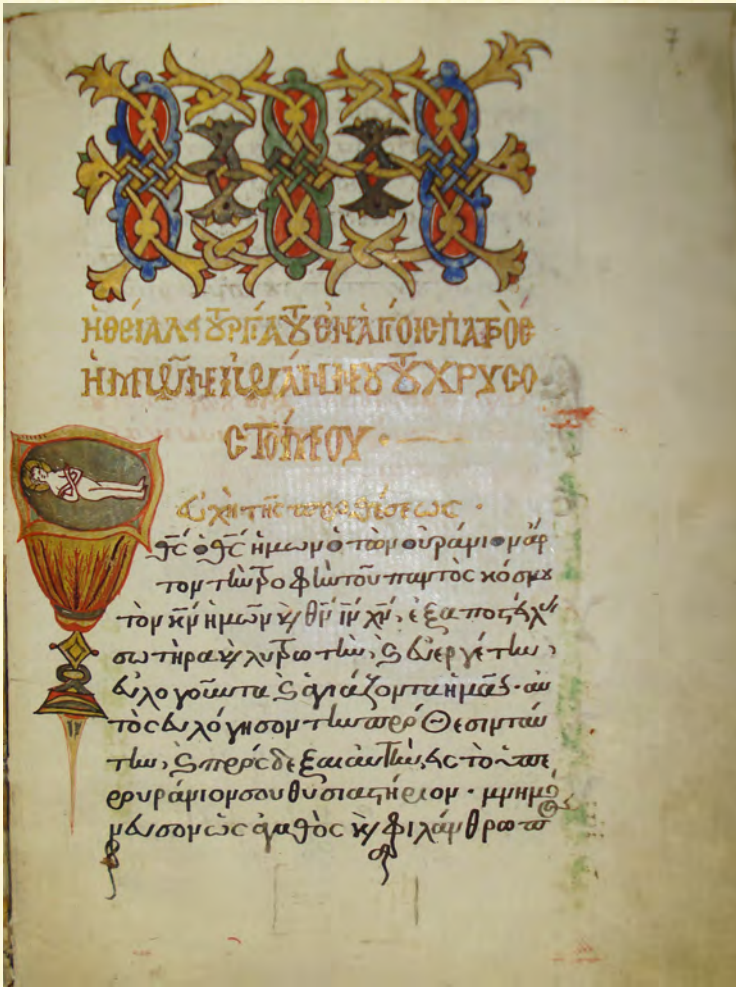 7
Ἡ ΘΕΊΑ ΛΕΙΤΟΥΡΓΊΑ ΤΟΥ ἘΝ ἉΓΊΟΙC ΠΑΤΡΟC
ἩΜΩ͂Ν ἸΩΆΝΝΟΥ ΤΟΥ ΧΡΥCΟ
CΤΌΜΟΥ ·
Εὐχὴ τῆς προθέσεως ·
Ὁ θς ὁ θς ἡμων ὁ τὸν οὐράνιον ἄρ
τον τὴν τροφὴν τοῦ παντὸς κόσμου
τὸν κν ἡμῶν κ θν ιν χν, ἐξαποστείλας
σωτῆρα κ λυτρωτὴν, κ εὐεργέτην,
εὐλογοῦντα κ ἁγιάζοντα ἡμᾶς · αὐ
τὸς εὐλόγησον τὴν πρόθεσιν ταύ
την, κ πρόσδεξαι αὐτὴν, εἰς τὸ ὑπε
ρουράνιον σου θυσιαστήριον · μνημό
νευσον ὡς ἀγαθὸς κ φιλάνθρωπος